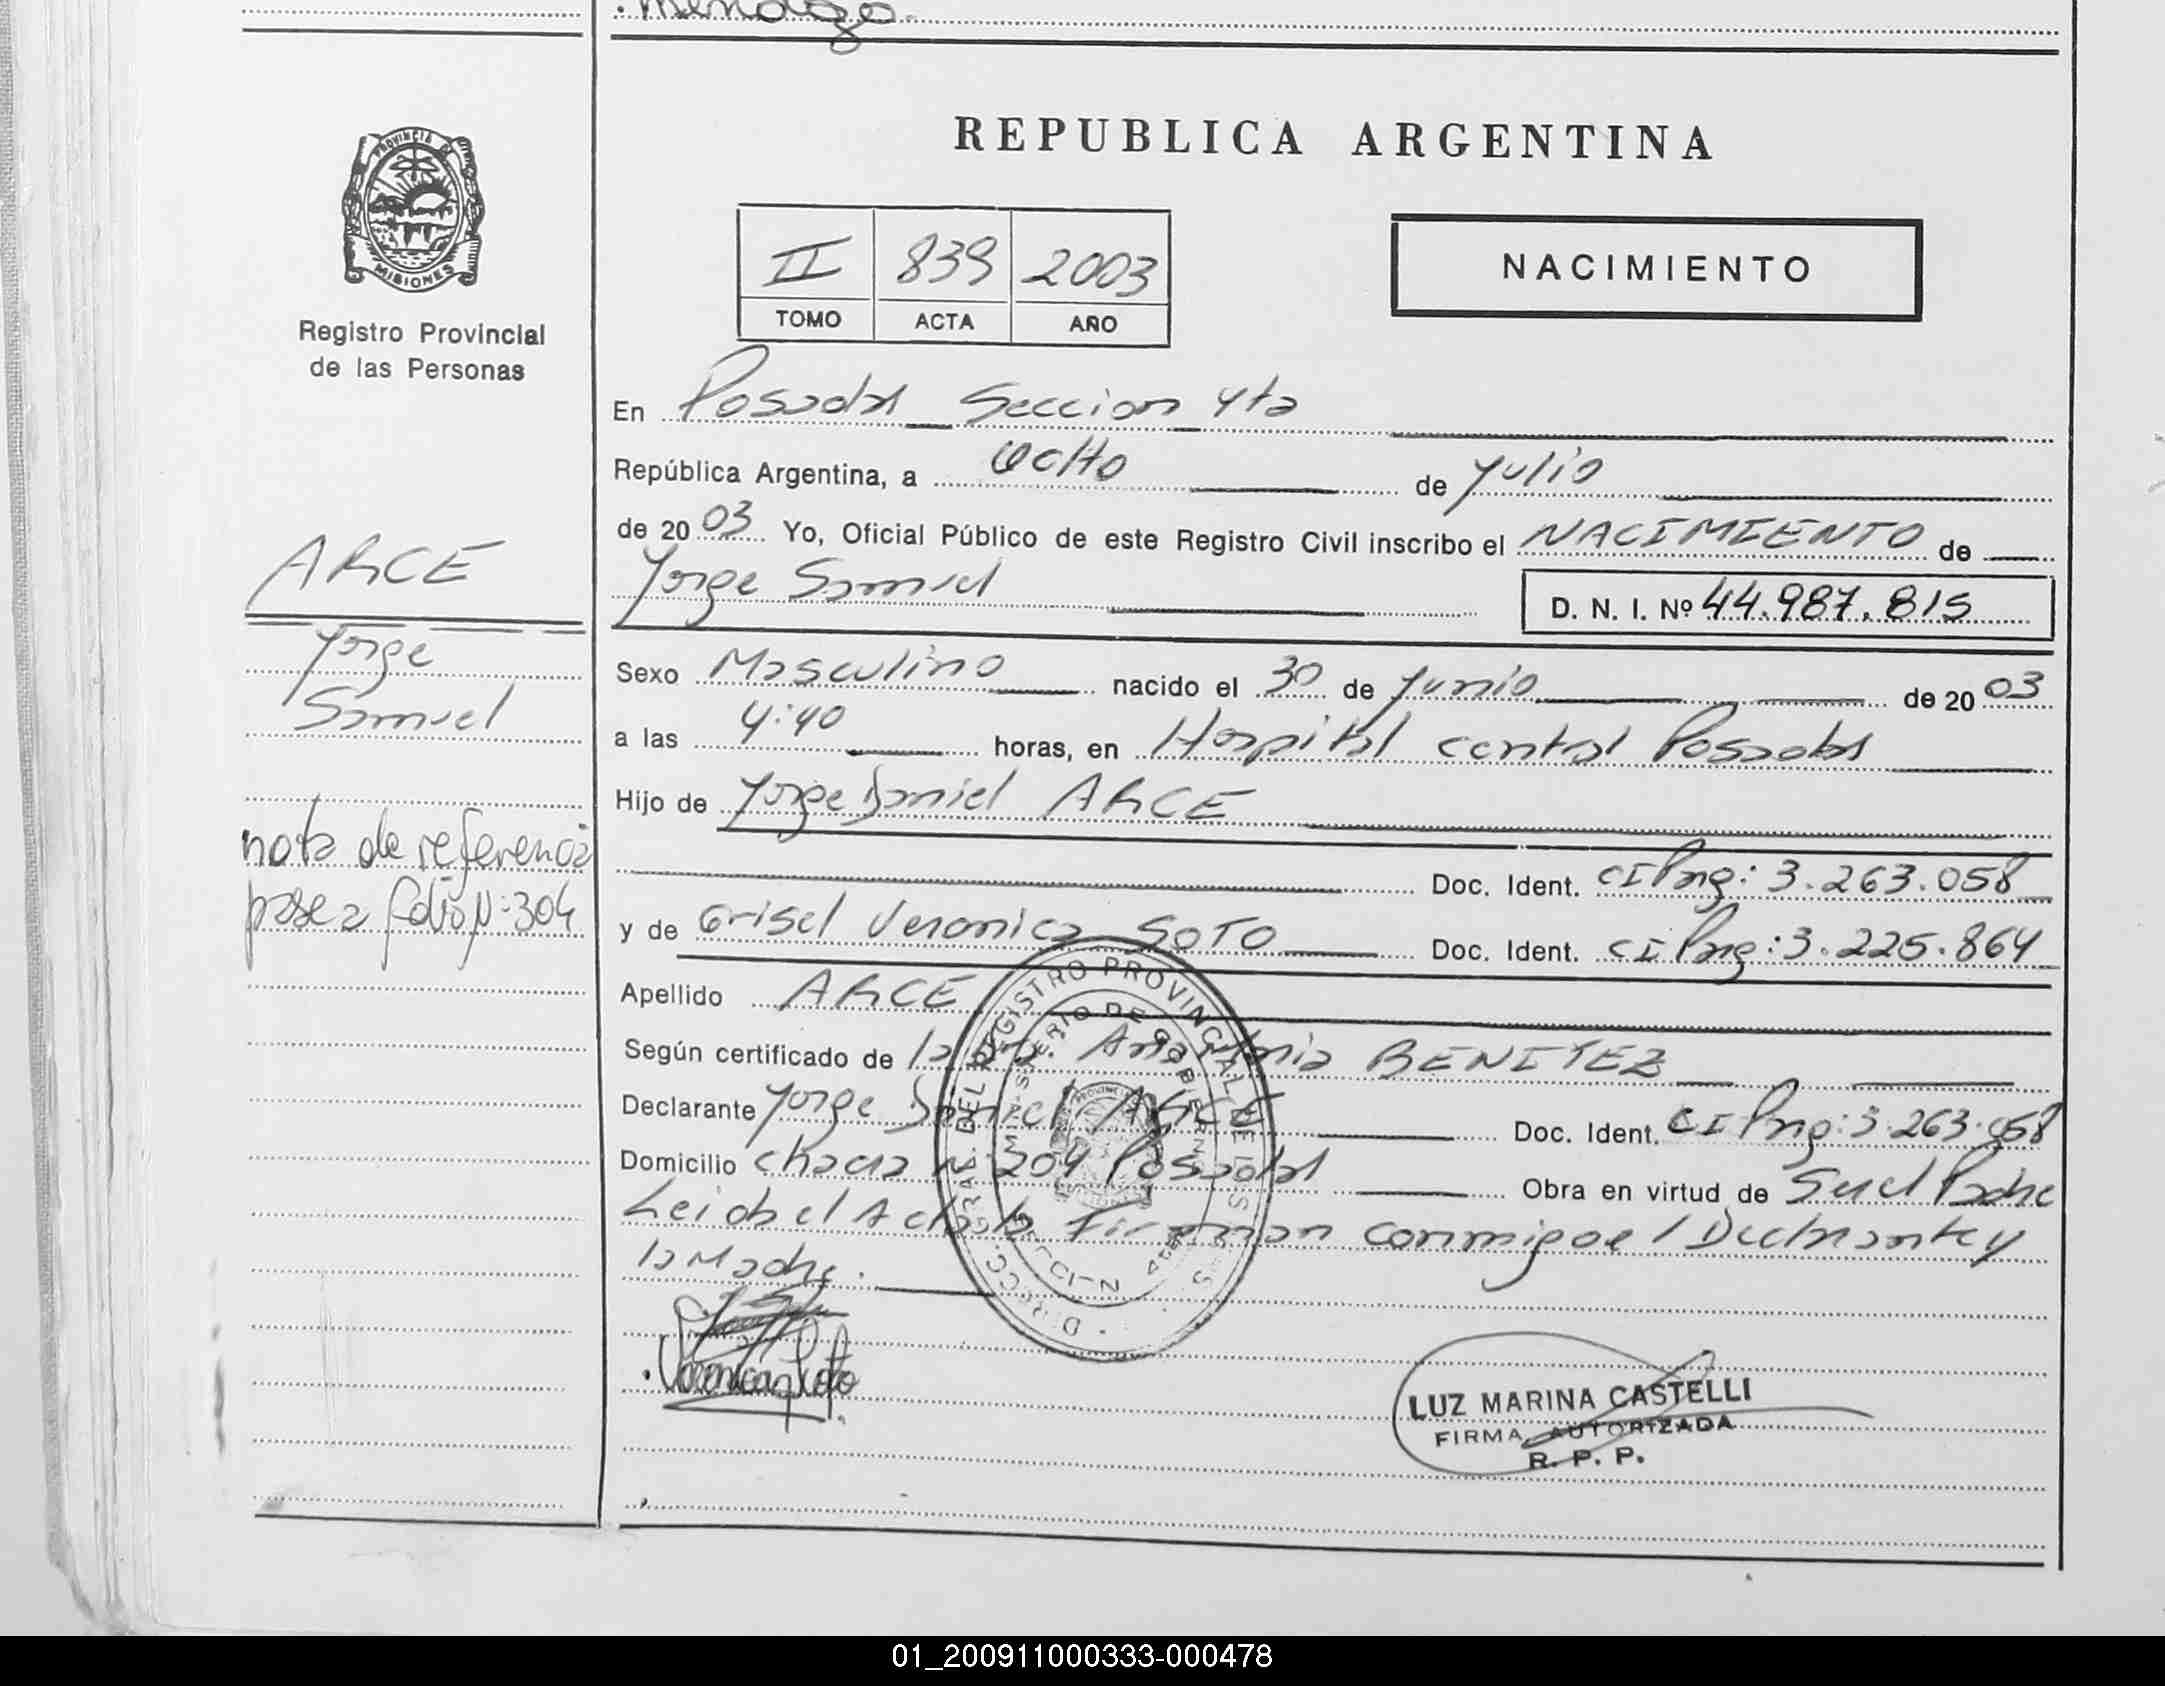 Mendoza.
PROVINCIA DE
MISIONES
Registro Provincial
de las Personas
REPUBLICA ARGENTINA
II 839 2003
TOMO ACTA AÑO
NACIMIENTO
En Posadas Seccion 4ta
República Argentina, a Ocho de Julio
de 20 03 Yo, Oficial Público de este Registro Civil inscribo el NACIMIENTO de
Jorge Samuel
D. N. I. Nº 44.987.815
ARCE
Jorge
Samuel
Sexo Masculino nacido el 30 de Junio de 20 03
a las 4:40 horas, en Hospital central Posadas
Hijo de Jorge Daniel ARCE
nota de referencia
pase a folio N: 304
Doc. Ident. CI Prog: 3.263.058
y de Grisel Veronica SOTO Doc. Ident. CI Prog: 3.225.864
Apellido ARCE
Según certificado de la Dra. Ana Maria BENITEZ
Declarante Jorge Daniel ARCE Doc. Ident. CI Prog: 3.263.058
Domicilio Chacra N: 204 Posadas Obra en virtud de Ser el Padre
Leida el Acta la Firman conmigo el Declarante y
la Madre.
DIRECC. GRAL. DEL REGISTRO PROVINCIAL DE LAS
MINISTERIO DE GOBIERNO
Veronica Soto
LUZ MARINA CASTELLI
FIRMA AUTORIZADA
R. P. P.
01_200911000333-000478